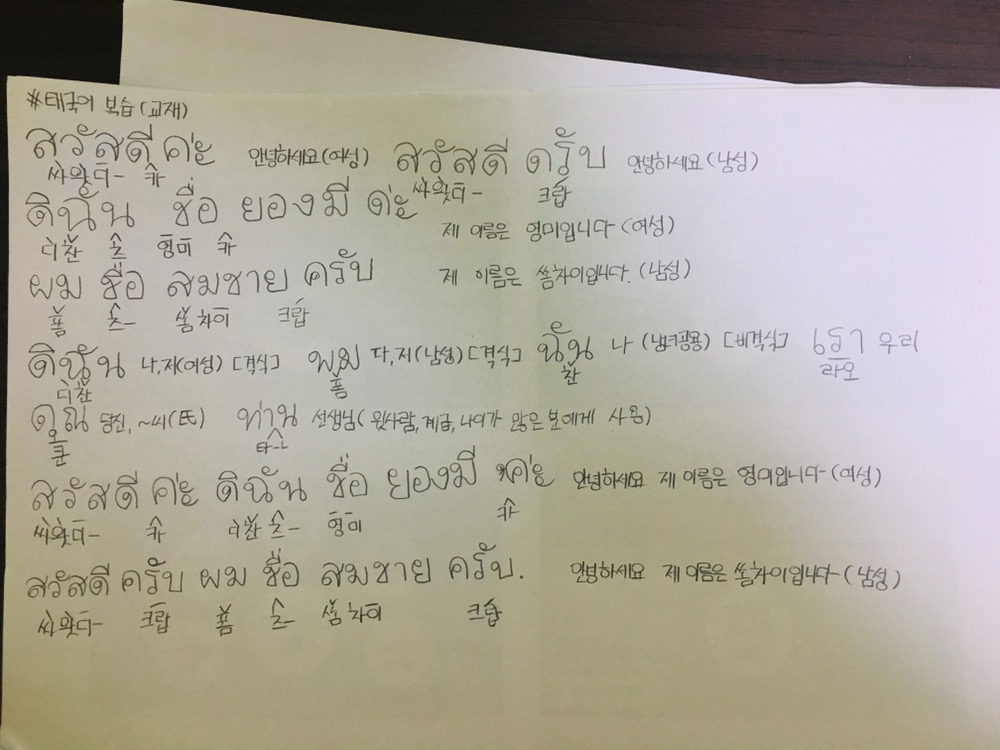 *태국어 복습 (교재)
สวัสดี ค่ะ 안녕하세요(여성) สวัสดี ครับ 안녕하세요(남성)
싸왓디- 카 싸왓디- 크랍
ดิฉัน ชื่อ ยองมี ค่ะ 제 이름은 영미입니다 (여성)
디찬 츠- 영미 카
ผม ชื่อ สมชาย ครับ 제 이름은 쏨차이입니다. (남성)
폼 츠- 쏨차이 크랍
ดิฉัน 나,저(여성) [격식] ผม 나,저(남성) [격식] ฉัน 나 (남녀공용) [비격식] เรา 우리
디찬 폼 찬 라오
คุณ 당신, ~씨(氏) ท่าน 선생님( 윗사람, 계급, 나이가 많은 분에게 사용)
쿤 타-ㄴ
สวัสดี ค่ะ ดิฉัน ชื่อ ยองมี ค่ะ 안녕하세요 제 이름은 영미입니다 (여성)
싸왓디- 카 디찬 츠- 영미 카
สวัสดี ครับ ผม ชื่อ สมชาย ครับ. 안녕하세요 제 이름은 쏨차이입니다 (남성)
싸왓디- 크랍 폼 츠- 쏨차이 크랍